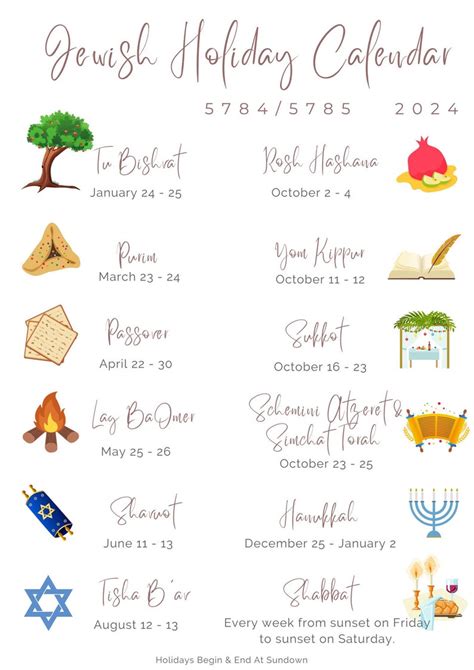 Jewish Holiday Calendar
5784/5785 2024
Tu Bishvat
January 24 - 25
Rosh Hashana
October 2 - 4
Purim
March 23 - 24
Yom Kippur
October 11 - 12
Passover
April 22 - 30
Sukkot
October 16 - 23
Lag BaOmer
May 25 - 26
Schemini Atzeret &
Simchat Torah
October 23 - 25
Shavuot
June 11 - 13
Hanukkah
December 25 - January 2
Tisha B'av
August 12 - 13
Shabbat
Every week from sunset on Friday
to sunset on Saturday.
Holidays Begin & End At Sundown